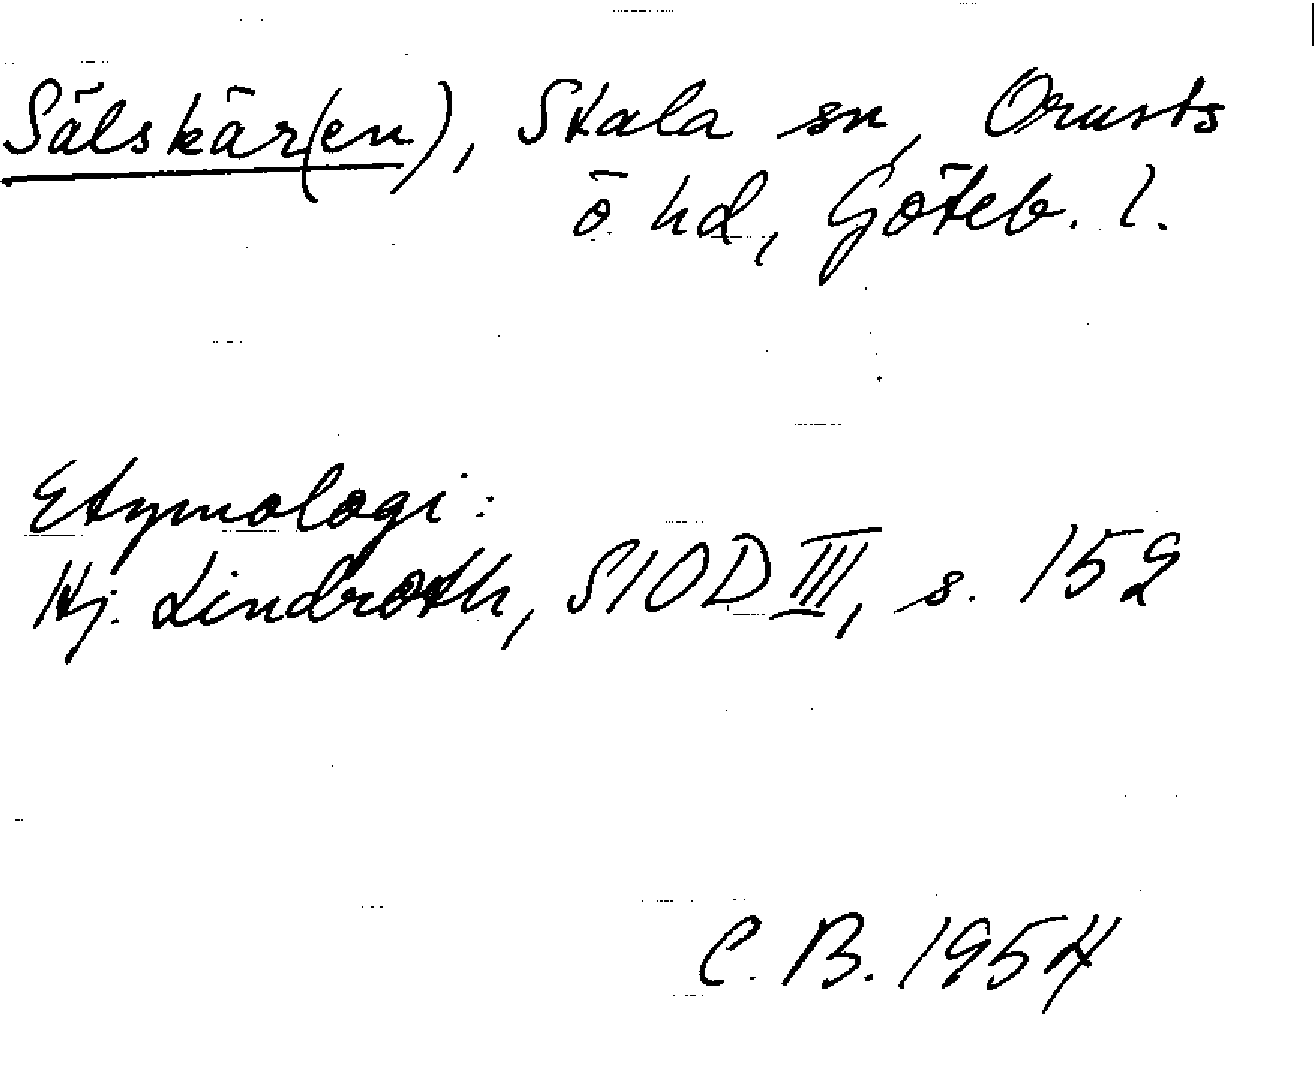 Sälskär(en), Stala sn, Orusts
ö hd, Göteb. l.
Etymologi:
Hj. Lindroth, SIOD III, s. 152
C. B. 1954